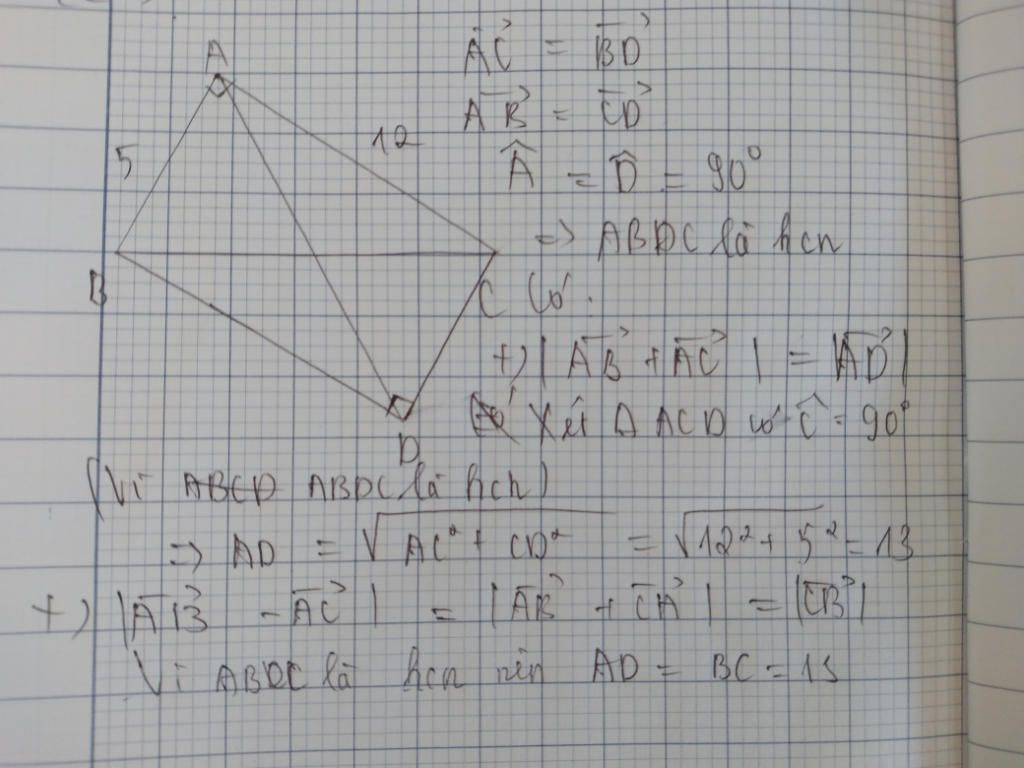 A
5
12
B
C
D
$\overrightarrow{AC} = \overrightarrow{BD}$
$\overrightarrow{AB} = \overrightarrow{CD}$
$\widehat{A} = \widehat{D} = 90^0$
=> ABDC là hcn
Có :
+) $|\overrightarrow{AB} + \overrightarrow{AC}| = |\overrightarrow{AD}|$
Xét Δ ACD có $\widehat{C} = 90^0$
(Vì ABDC là hcn)
=> AD = $\sqrt{AC^2 + CD^2}$ = $\sqrt{12^2 + 5^2}$ = 13
+) $|\overrightarrow{AB} - \overrightarrow{AC}| = |\overrightarrow{AB} + \overrightarrow{CA}| = |\overrightarrow{CB}|$
Vì ABDC là hcn nên AD = BC = 13